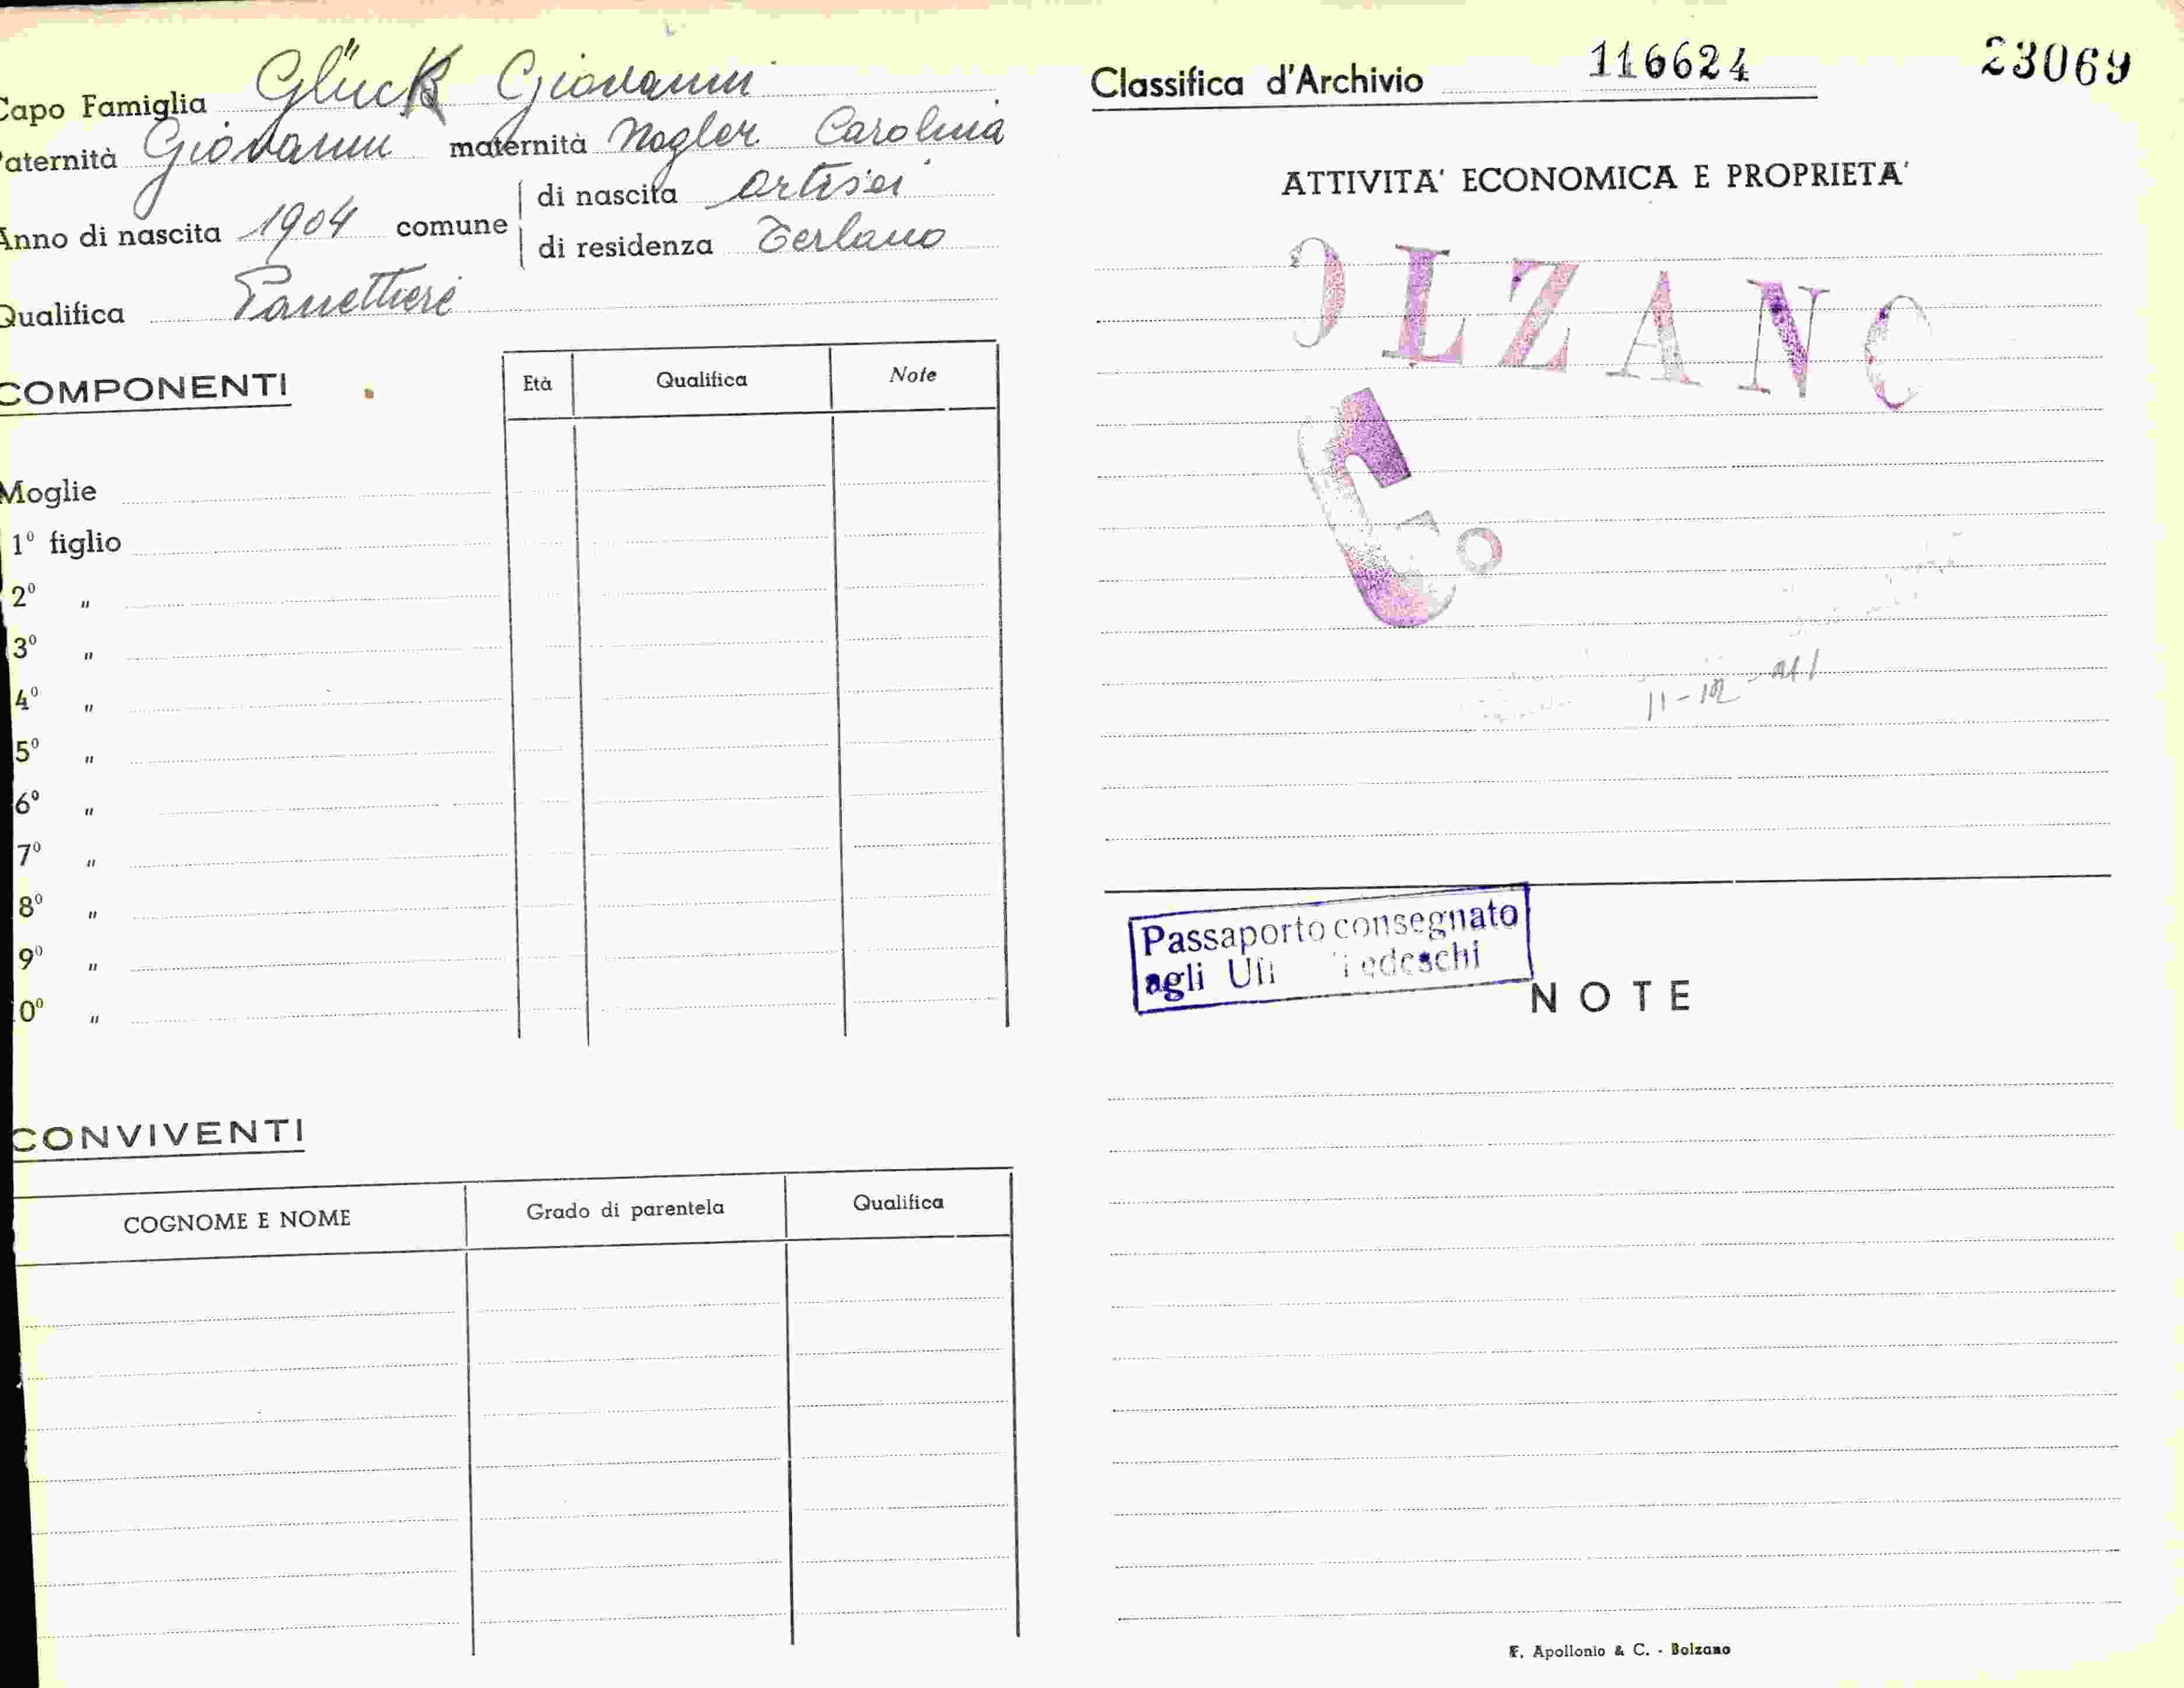 Capo Famiglia Glück Giovanni
Paternità Giovanni maternità Nogler Carolina
Anno di nascita 1904 comune
di nascita Ortisei
di residenza Terlano
Qualifica Panettiere
COMPONENTI
Età Qualifica Note
Moglie
1° figlio
2° "
3° "
4° "
5° "
6° "
7° "
8° "
9° "
0° "
CONVIVENTI
COGNOME E NOME Grado di parentela Qualifica
Classifica d'Archivio 116624
23069
ATTIVITA' ECONOMICA E PROPRIETA'
OLZANO
Passaporto consegnato
agli Tedeschi
NOTE
F. Apollonio & C. - Bolzano